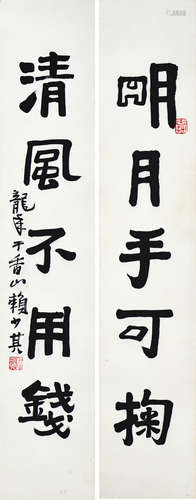 明月手可掬
清風不用錢
龍年于香山賴少其